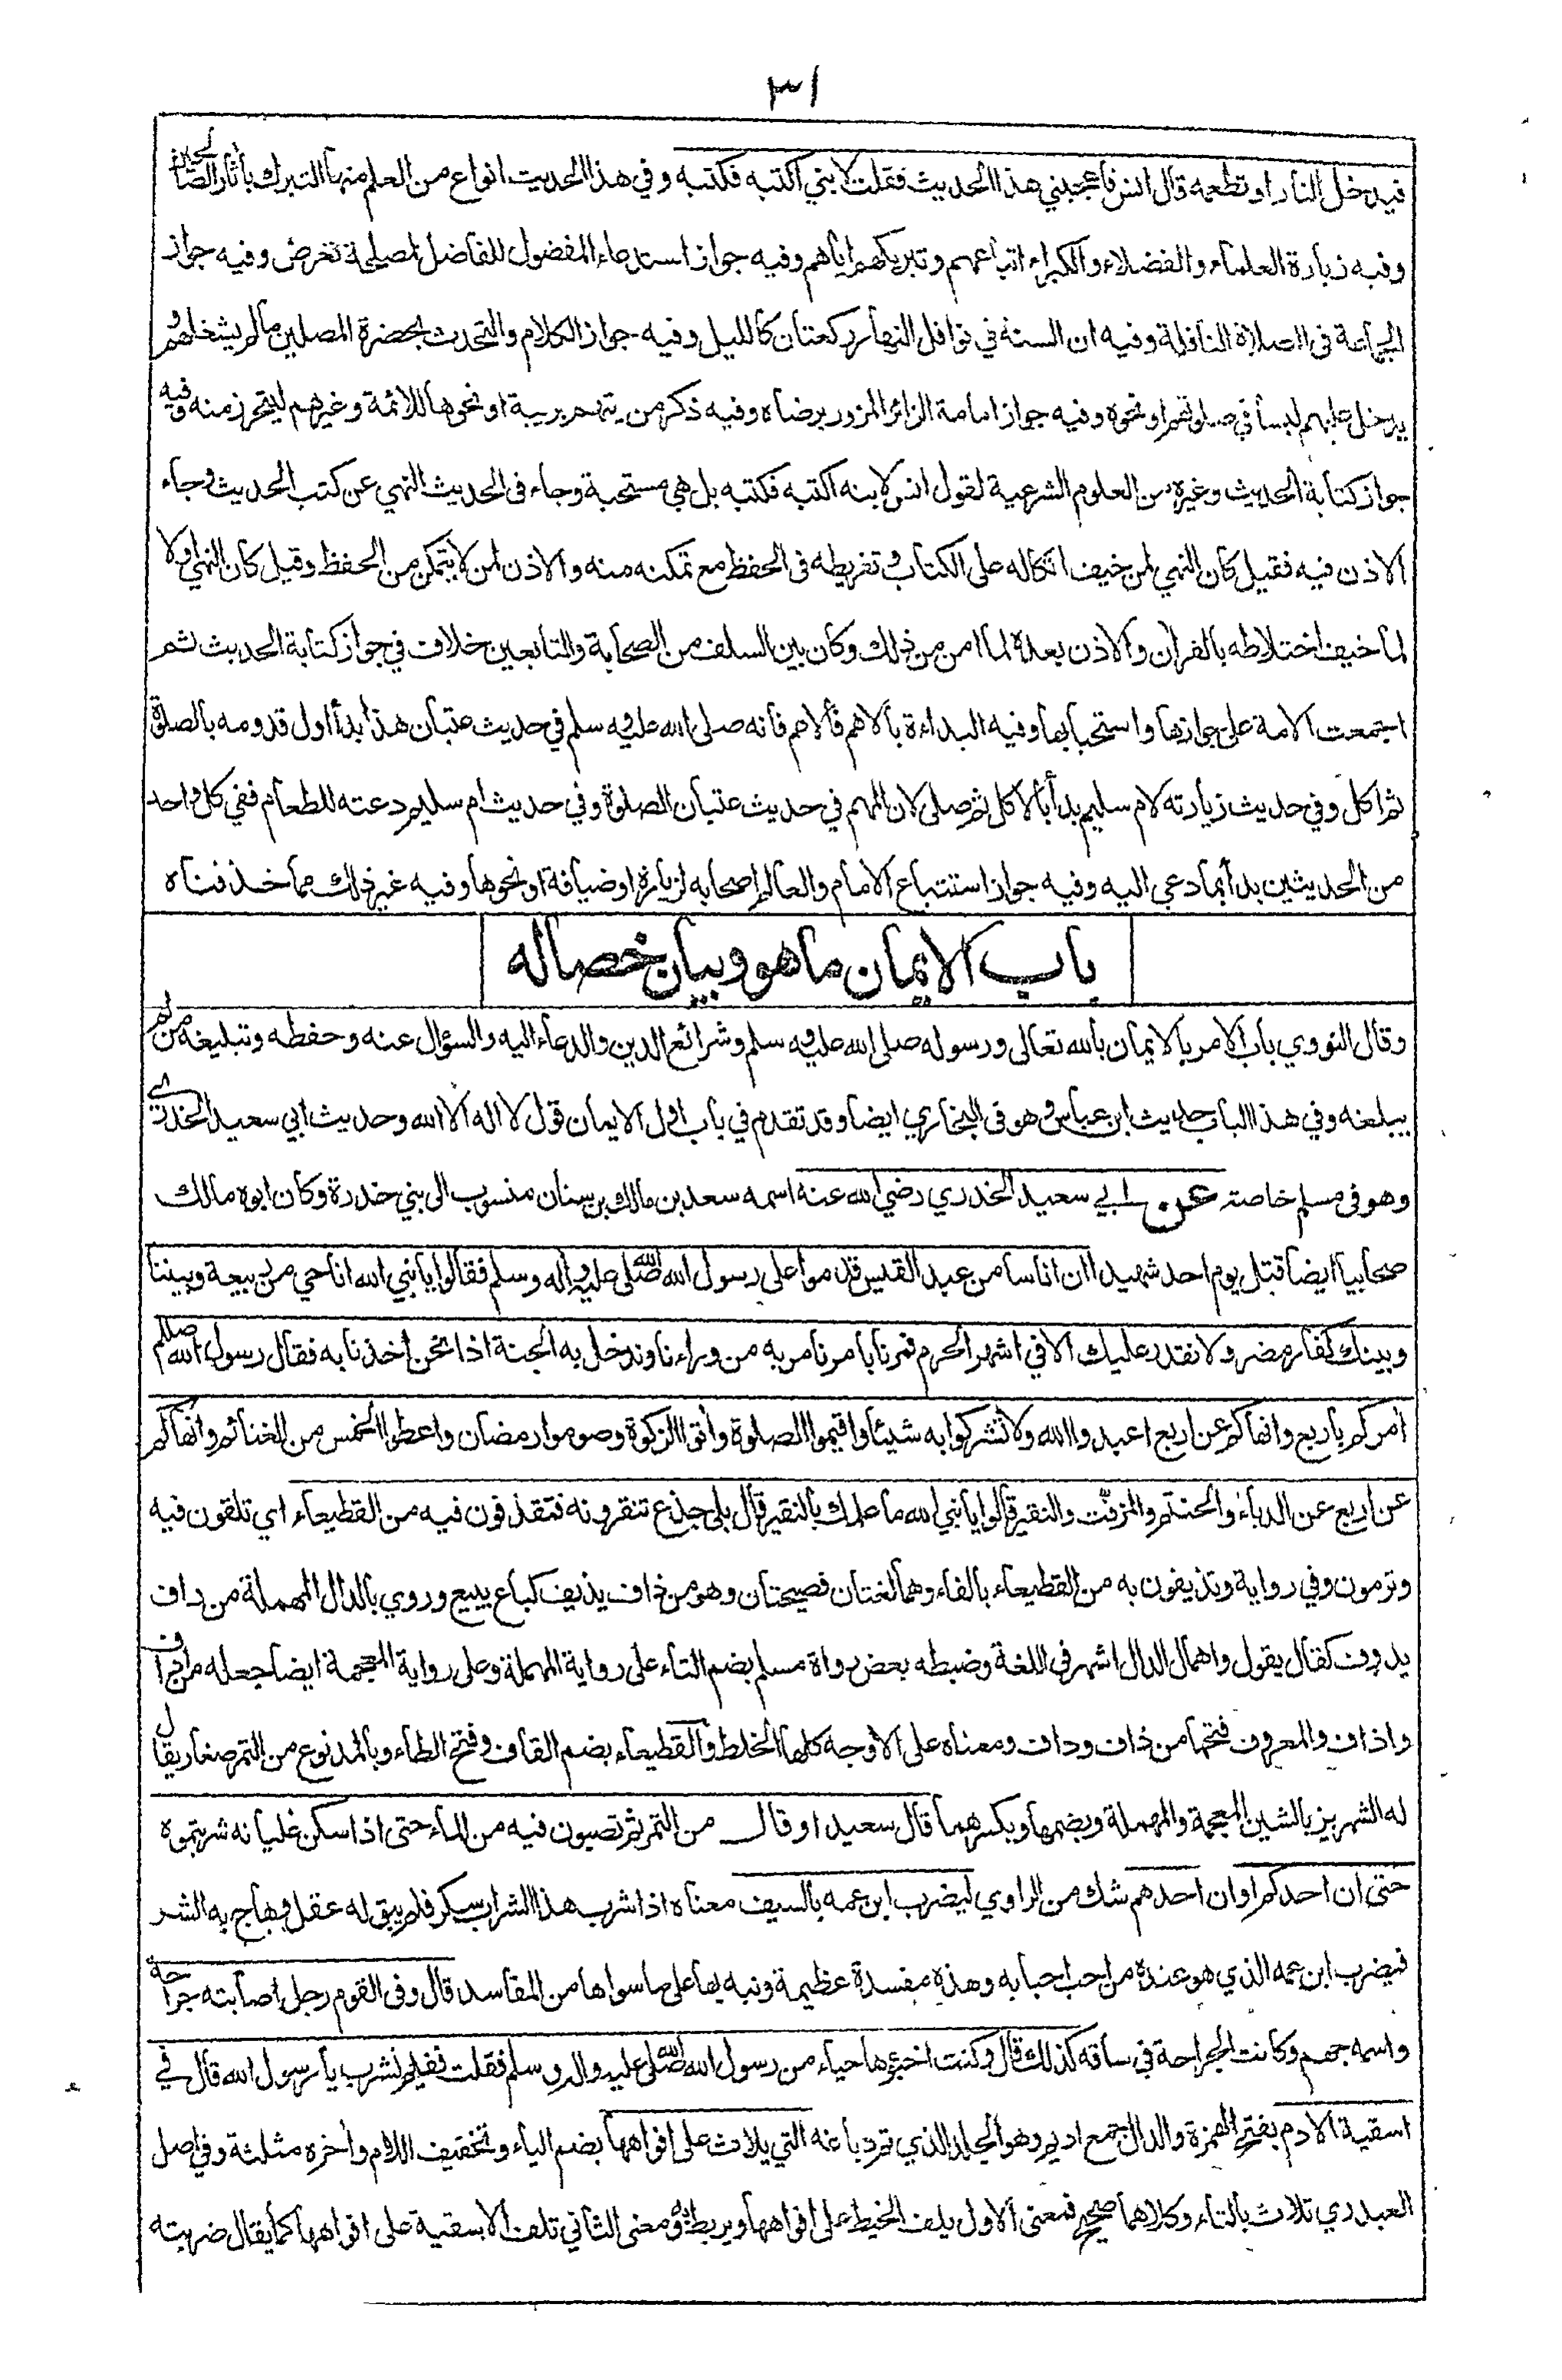 ٣١
فيدخل النار او تطعمه قال انس فاعجبني هذا الحديث فقلت لابني اكتبه فكتبه وفي هذا الحديث انواع من العلم منها التبرك بأثار الصالحين
وفيه زيارة العلماء والفضلاء والكبراء اتباعهم وتبريكهم اياهم وفيه جواز استدعاء المفضول للفاضل لمصلحة تعرض وفيه جواز
الجماعة فى الصلاة النافلة وفيه ان السنة في نوافل النهار ركعتان كالليل وفيه جواز الكلام والتحدث بحضرة المصلين مالم يشغلهم و
يدخل عليهم لبسا في صلوتهم او نحوه وفيه جواز امامة الزائر المزور برضاه وفيه ذكر من يتهم بريبة او نحوها للائمة وغيرهم ليتحرز منه وفيه
جواز كتابة الحديث وغيره من العلوم الشرعية لقول انس لابنه اكتبه فكتبه بل هي مستحبة وجاء فى الحديث النهي عن كتب الحديث وجاء
الاذن فيه فقيل كان النهي لمن خيف اتكاله على الكتاب وتفريطه فى الحفظ مع تمكنه منه والاذن لمن لا يتمكن من الحفظ وقيل كان النهي اولا
لما خيف اختلاطه بالقرأن والاذن بعده لما امن من ذلك وكان بين السلف من الصحابة والتابعين خلاف في جواز كتابة الحديث ثم
اجمعت الامة على جوازها واستحبابها وفيه البداءة بالاهم فالاهم فانه صلى الله عليه وسلم في حديث عتبان هذا بدأ اول قدومه بالصلوة
ثم اكل وفي حديث زيارته لام سليم بدأ بالاكل ثم صلى لان المهم في حديث عتبان الصلوة وفي حديث ام سليم دعته للطعام ففي كل واحد
من الحديثين بدأ بما دعي اليه وفيه جواز استتباع الامام والعالم اصحابه لزيارة او ضيافة او نحوها وفيه غير ذلك مما حذفناه
باب الايمان ما هو وبيان خصاله
وقال النووي باب الامر بالايمان بالله تعالى ورسوله صلى الله عليه وسلم وشرائع الدين والدعاء اليه والسؤال عنه وحفظه وتبليغه من لم
يبلغه وفي هذا الباب حديث ابن عباس وهو فى البخاري ايضا وقد تقدم في باب اول الايمان قول لا اله الا الله وحديث ابي سعيد الخدري
وهو فى مسلم خاصة عن ابي سعيد الخدري رضي الله عنه اسمه سعد بن مالك بن سنان منسوب الى بني خدرة وكان ابوه مالك
صحابيا ايضا قتل يوم احد شهيدا ان اناسا من عبد القيس قدموا على رسول الله صلى الله عليه واله وسلم فقالوا يا نبي الله انا حي من ربيعة وبيننا
وبينك كفار مضر ولا نقدر عليك الا في اشهر الحرم فمرنا بامر نامر به من وراءنا وندخل به الجنة اذا نحن اخذنا به فقال رسول الله صللم
أمركم باربع وانهاكم عن اربع اعبدوا الله ولا تشركوا به شيئا واقيموا الصلوة وأتوا الزكوة وصوموا رمضان واعطوا الخمس من الغنائم وانهاكم
عن اربع عن الدباء والحنتم والمزفت والنقير قالوا يا نبي الله ما علمك بالنقير قال بلى جذع تنقرونه فتقذفون فيه من القطيعاء اي تلقون فيه
وترمون وفي رواية وتذيفون به من القطيعاء بالفاء وهما لغتان فصيحتان وهو من ذاف يذيف كباع يبيع وروي بالدال المهملة من داف
يدوف كقال يقول واهمال الدال اشهر فى اللغة وضبطه بعض رواة مسلم بضم التاء على رواية المهملة وعلى رواية المعجمة ايضا جعله من اداف
واذاف والمعروف فتحها من ذاف وداف ومعناه على الاوجه كلها الخلط والقطيعاء بضم القاف وفتح الطاء وبالمد نوع من التمر صغار يقال
له الشهريز بالشين المعجمة والمهملة وبضمها وبكسرهما قال سعيد او قال من التمر ثم تصبون فيه من الماء حتى اذا سكن غليانه شربتموه
حتى ان احدكم او ان احدهم شك من الراوي ليضرب ابن عمه بالسيف معناه اذا شرب هذا الشراب سكر فلم يبق له عقل وهاج به الشر
فيضرب ابن عمه الذي هو عنده من احب احبابه وهذه مفسدة عظيمة ونبه بها على ما سواها من المفاسد قال وفى القوم رجل اصابته جراحة
واسمه جهم وكانت الجراحة في ساقه كذلك قال وكنت اخبؤها حياء من رسول الله صلى الله عليه واله وسلم فقلت ففيم نشرب يا رسول الله قال في
اسقية الادم بفتح الهمزة والدال جمع اديم وهو الجلد الذي تم دباغه التي يلاث على افواهها بضم الياء وتخفيف اللام وأخره مثلثة وفي اصل
العبدري تلاث بالتاء وكلاهما صحيح فمعنى الاول يلف الخيط على افواهها ويربط به ومعنى الثاني تلف الاسقية على افواهها كما يقال ضربته